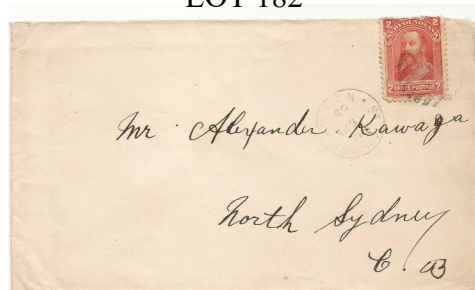 LOT 182
2 NEWFOUNDLAND 2
2 CENTS POSTAGE 2
Mr. Alexander Kawaja
North Sydney
C. B